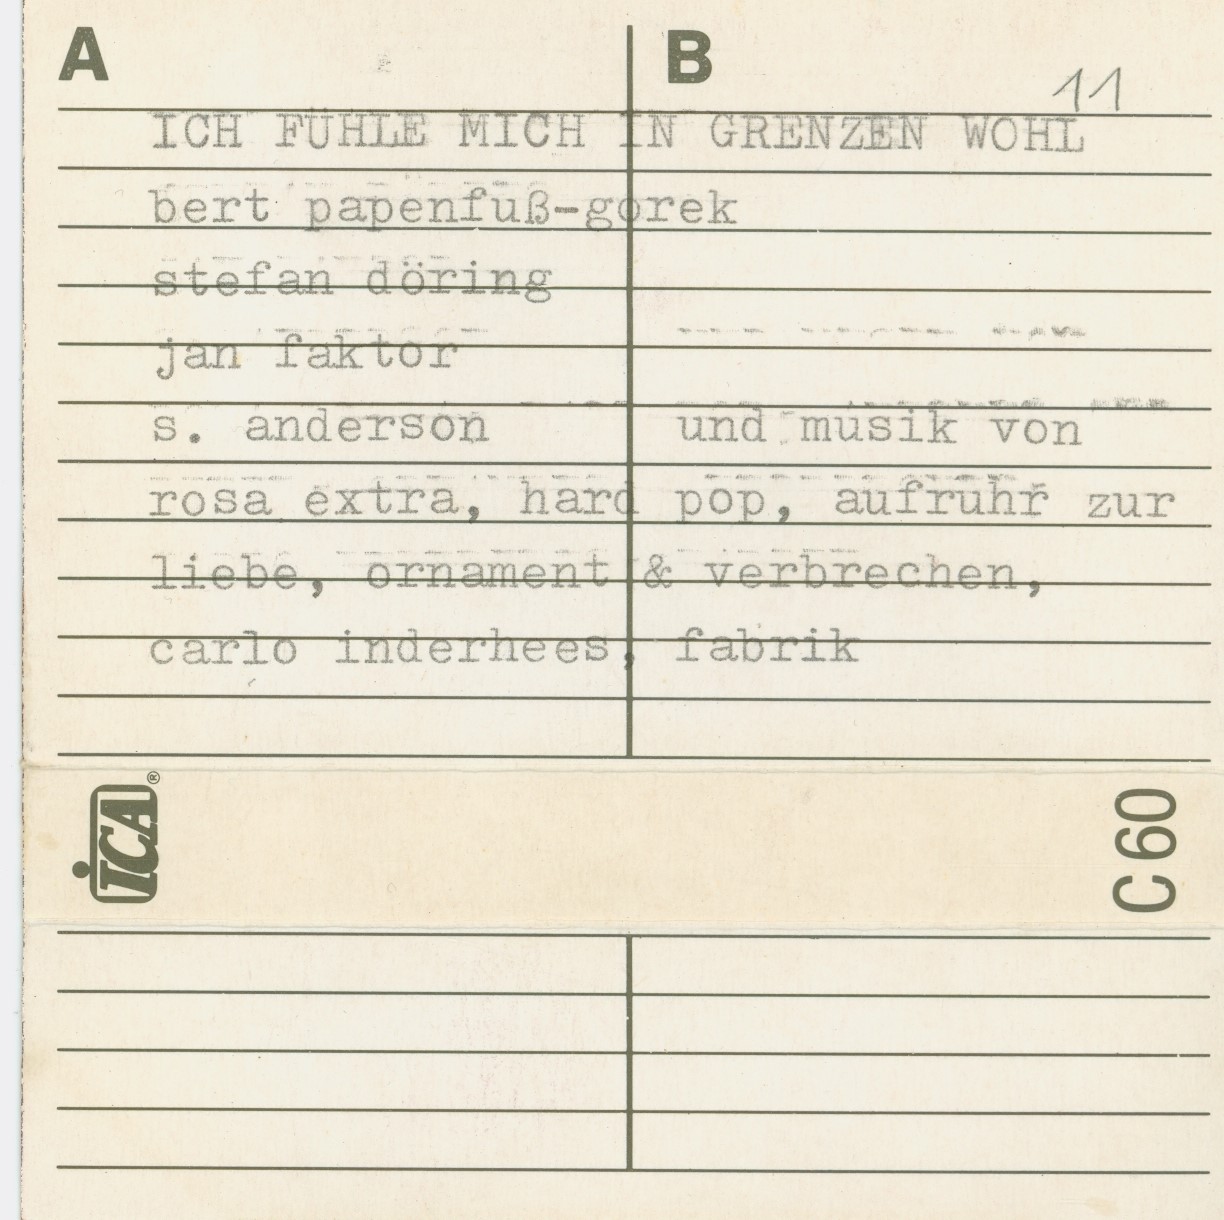 A B
11
ICH FÜHLE MICH IN GRENZEN WOHL
bert papenfuß-gorek
stefan döring
jan faktor
s. anderson und musik von
rosa extra, hard pop, aufruhr zur
liebe, ornament & verbrechen,
carlo inderhees, fabrik
ICA®
C 60